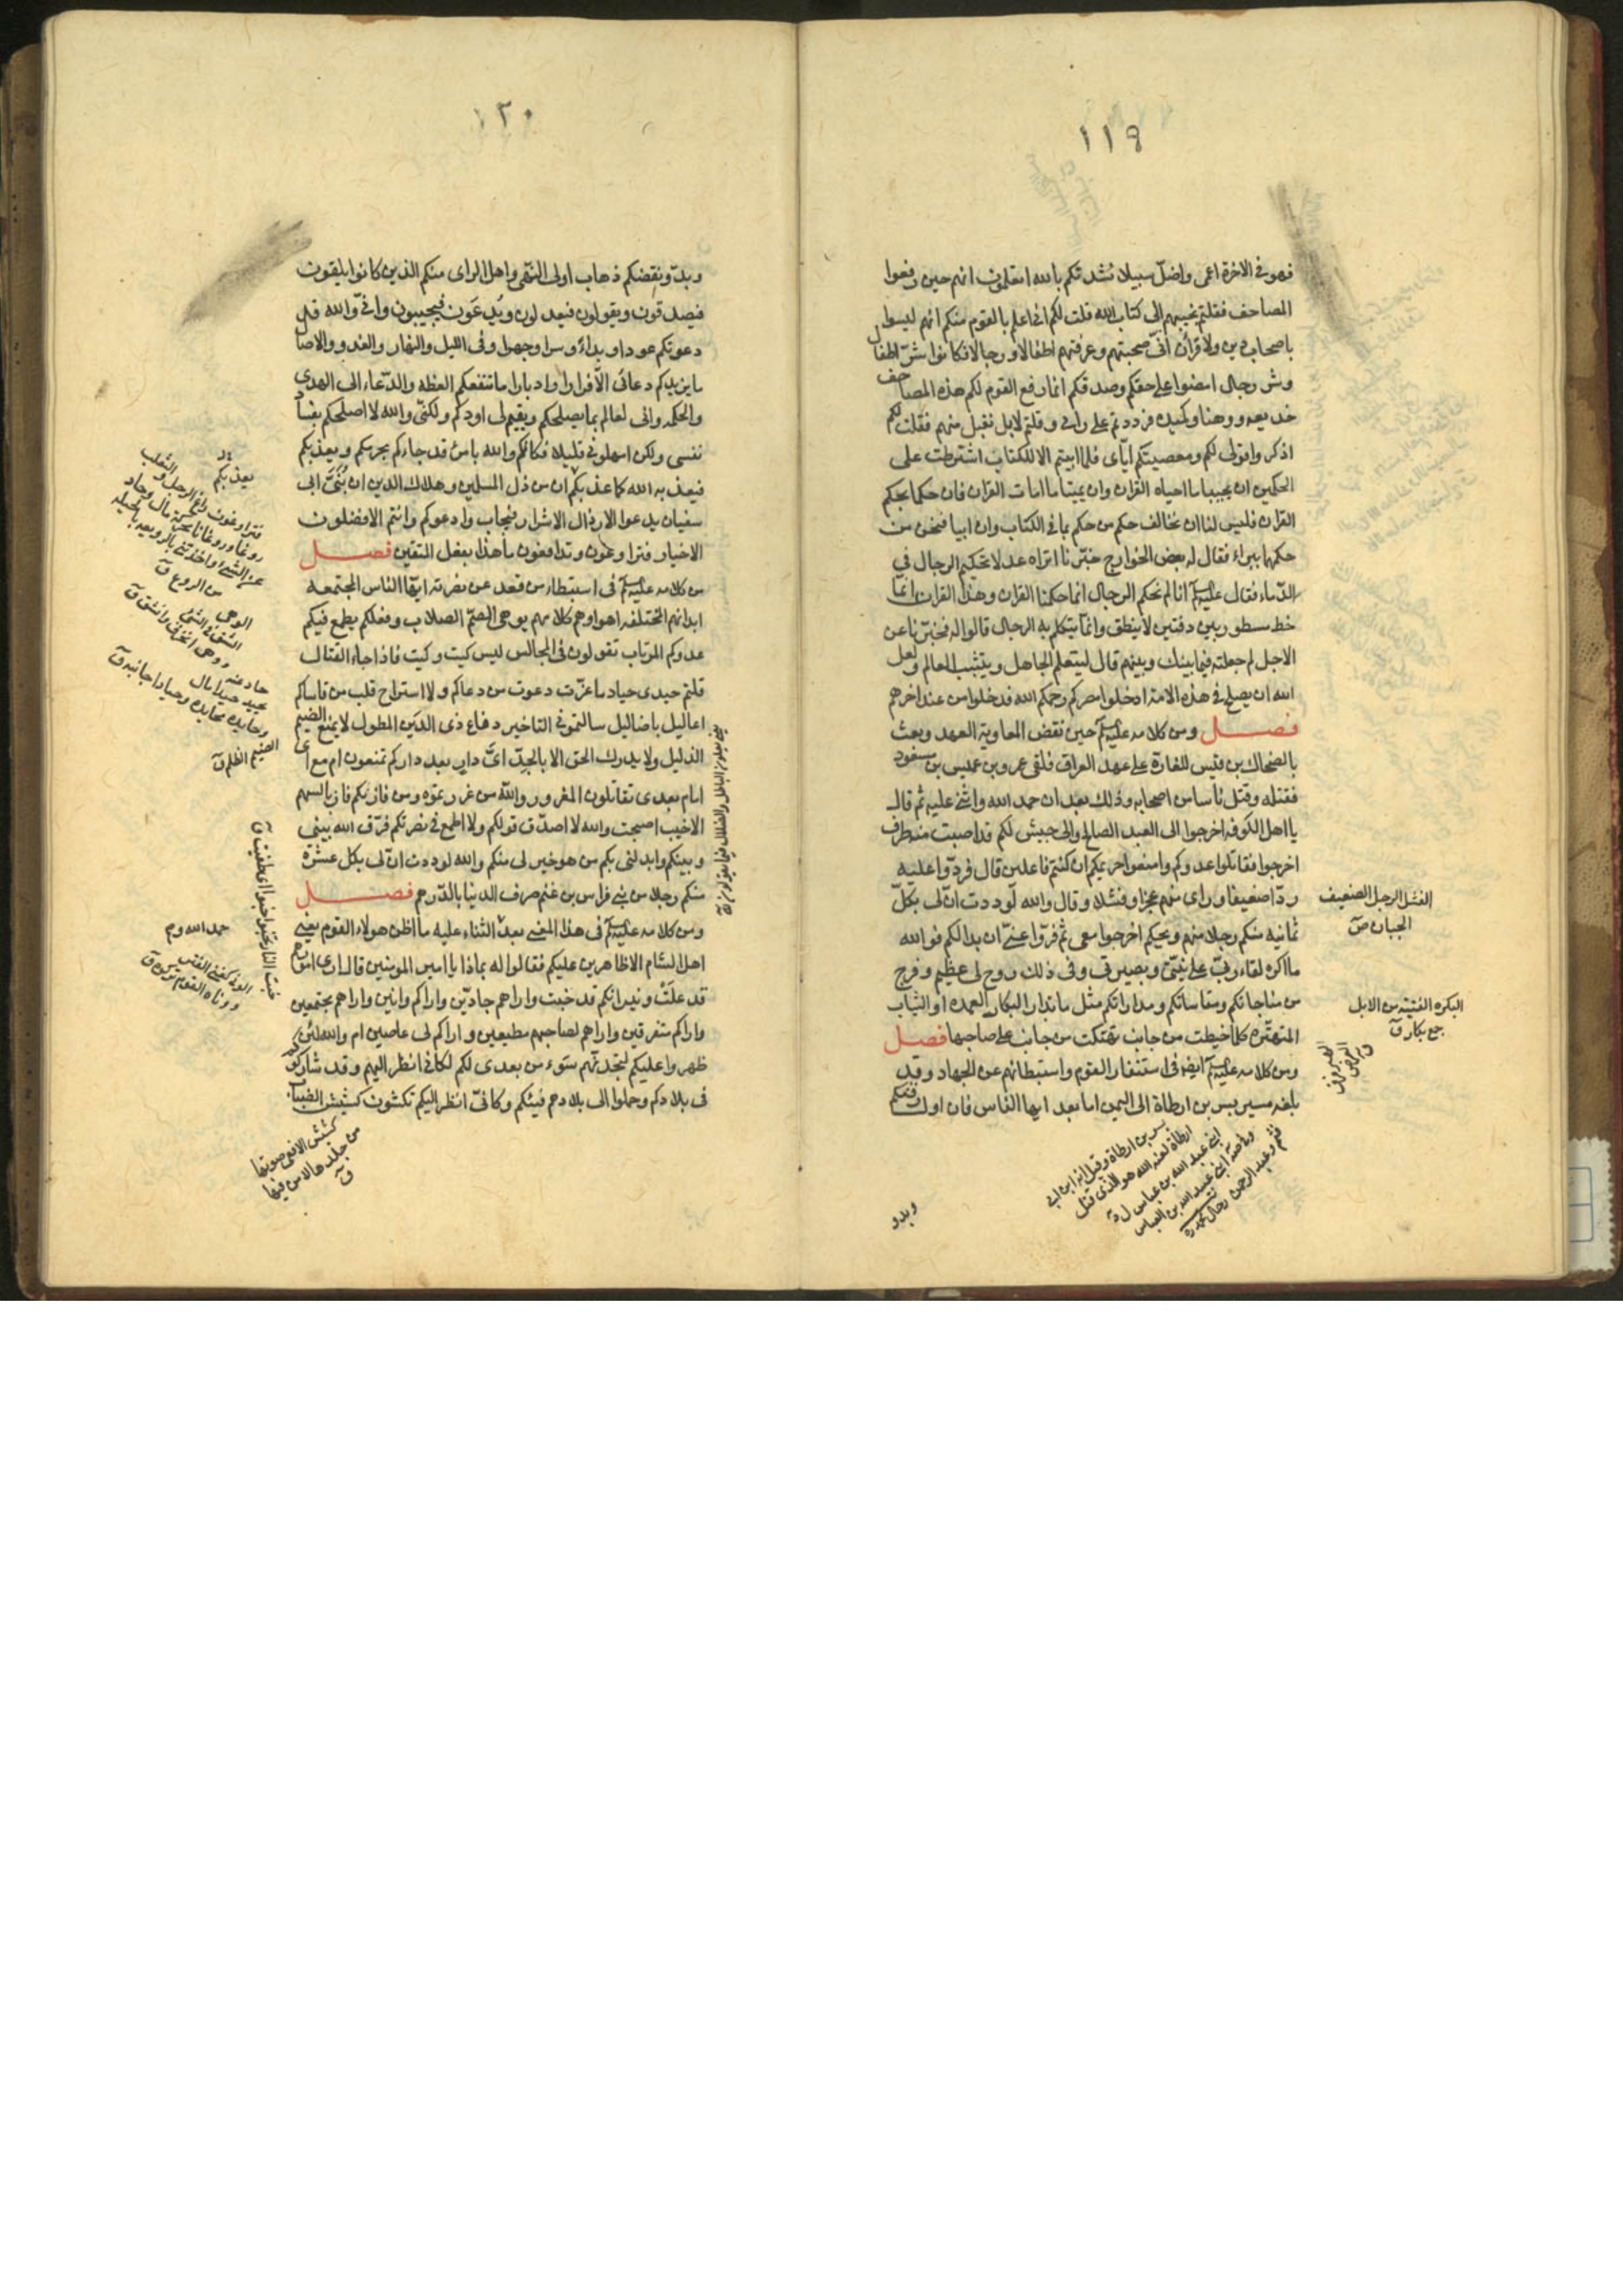 ١١٩
فهو في الاخرة اعمى واضلّ سبيلا نشدتكم بالله اتعلمون انهم حين رفعوا
المصاحف فقلتم نجيبهم الى كتاب الله قلت لكم انى اعلم بالقوم منكم انهم ليسوا
باصحاب دين ولا قرآن انّى صحبتهم وعرفتهم اطفالا ورجالا فكانوا شرّ اطفال
وشر رجال امضوا على حقكم وصدقكم انما رفع القوم لكم هذه المصاحف
خديعه ووهنا وكيده فرددتم على رايى وقلتم لا بل نقبل منهم فقلت لكم
اذكروا قولى لكم ومعصيتكم ايّاى فلما ابيتم الا الكتاب اشترطت على
الحكمين ان يحييا ما احياه القرآن وان يميتا ما امات القرآن فان حكما بحكم
القرآن فليس لنا ان نخالف حكم من حكم بما فى الكتاب وان ابيا فنحن من
حكمهما ببراء فقال له بعض الخوارج خبّرنا اتراه عدلا تحكيم الرجال في
الدّماء فقال عليه السلام انا لم نحكم الرجال انما حكمنا القران وهذا القران انّما
خط مسطور بين دفتين لا ينطق وانما يتكلم به الرجال قالوا له فخبّرنا عن
الاجل لم جعلته فيما بينك وبينهم قال ليتعلم الجاهل ويتثبت العالم ولعل
الله ان يصلح في هذه الامة ادخلوا مصركم رحمكم الله فدخلوا من عند اخرهم
فصل ومن كلامه عليه السلام حين نقض المعاوية العهد وبعث
بالضحاك بن قيس للغارة على عهد العراق فلقى عمرو بن عميس بن مسعود
فقتله وقتل ناسا من اصحابه وذلك بعد ان حمد الله واثنى عليه ثم قال
يا اهل الكوفه اخرجوا الى العبد الصالح والى جيش لكم قد اصيبت منه طرف
اخرجوا فقاتلوا عدوكم وامنعوا حريمكم ان كنتم فاعلين قال فردّوا عليه
ردّا ضعيفا وراى منهم عجزا وفشلا وقال والله لوددت ان لى بكلّ
ثمانيه منكم رجلا منهم ويحكم اخرجوا معى ثم فرّوا عنّى ان بدا لكم فو الله
ما اكره لقاء ربّى على نيّتى وبصيرتى وفى ذلك روح لى عظيم وفرج
من مناجاتكم ومقاساتكم ومداراتكم مثل ما تدارا البكار العمده او الثياب
المتهتّره كلما خيطت من جانب تهتكت من جانب على صاحبها فصل
ومن كلامه عليه السلام ايضا فى استنفار القوم واستبطائهم عن الجهاد وقد
بلغه مسير بسر بن ارطاة الى اليمن اما بعد ايها الناس فان اول رفثكم
الفشل الرجل الضعيف
الجبان ص
البكره الفتيّة من الابل
جمع بكار ق
بسر بن ارطاة وقيل انه ابن ابى
ارطاة لعنه الله هو الذى قتل
ابنى عبد الله بن عباس
قثم وعبد الرحمن
وبدو
١٢٠
وبدو نقضكم ذهاب اولى النّهى واهل الراى منكم الذين كانوا يلقون
فيصدقون ويقولون فيعدلون ويُدعَون فيجيبون وانّى والله قد
دعوتكم عودا وبداءً وسرا وجهرا وفى الليل والنهار والغدو والاصال
ما يزيدكم دعائى الّا فرارا وادبارا ما تنفعكم العظه والدّعاء الى الهدى
والحكمه وانى لعالم بما يصلحكم ويقيم لى اودكم ولكنّى والله لا اصلحكم بفساد
نفسى ولكن امهلونى قليلا فكانكم والله بامرئ قد جاءكم يحرمكم ويعذبكم
فيعذبه الله كما عذبكم ان من ذل المسلمين وهلاك الدين ان بُنَىَّ ابى
سفيان يدعوا الارذال الاشرار فيجاب وادعوكم وانتم الافضلون
الاخيار فتراوغون وتدافعون ما هذا بفعل المتقين فصل
من كلامه عليه السلام فى استبطاء من قعد عن نصرته ايها الناس المجتمعه
ابدانهم المختلفه اهواوهم كلامهم يوهى الصّمّ الصلاب وفعلكم يطمع فيكم
عدوكم المرتاب تقولون فى المجالس كيت وكيت فاذا جاء القتال
قلتم حيدى حياد ما عزّت دعوت من دعاكم ولا استراح قلب من قاساكم
اعاليل باضاليل سالتمونى التاخير دفاع ذى الدين المطول لا يمنع الضيم
الذليل ولا يدرك الحق الا بالجدّ اىَّ دار بعد داركم تمنعون ام مع اى
امام بعدى تقاتلون المغرور والله من غررتموه ومن فاز بكم فاز بالسهم
الاخيب اصبحت والله لا اصدّق قولكم ولا اطمع فى نصرتكم فرّق الله بينى
وبينكم وابدلنى بكم من هو خير لى منكم والله لوددت انّ لى بكل عشرة
منكم رجلا من بنى فراس بن غنم صرف الدينا بالدّرهم فصل
ومن كلامه عليه السلام فى هذا المعنى بعد الثناء عليه ما اظن هولاء القوم يعنى
اهل الشام الا ظاهرين عليكم فقالوا له بماذا يا امير المومنين قال ارى امورهم
قد علَتْ ونيرانكم قد خبت واراهم جادّين واراكم وانين واراهم مجتمعين
واراكم متفرقين واراهم لصاحبهم مطيعين واراكم لى عاصين ام والله لئن
ظهروا عليكم لتجدنّهم سَوء من بعدى لكم لكانى انظر اليهم وقد شاركوكم
فى بلادكم وحملوا الى بلادهم فيئكم وكانىّ انظر اليكم تكشون كشيش الضباب
يعذبكم
من الروع ق
الوهى
الشق فى الشئ
وهى انخرق وانشق ق
حاد عنه
يحيد حيدا مال
وحايده محايدة وحيادا جانبه ق
الضيم الظلم ق
حمد الله وم
كشيش الافعى صوتها
من جلدها لا من فيها
ق